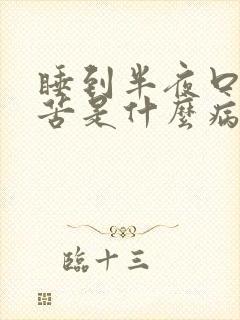 睡到半夜口
苦是什麼病
臨十三